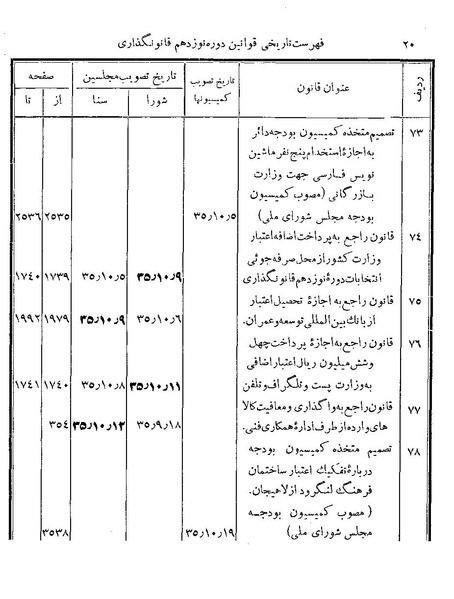 ۲۰ فهرست تاریخی قوانین دوره نوزدهم قانونگذاری
ردیف عنوان قانون تاریخ تصویب کمیسیونها تاریخ تصویب مجلسین صفحه
شورا سنا از تا
۷۳ تصمیم متخذه کمیسیون بودجه دائر
به اجازۀ استخدام پنج نفر ماشین
نویس فارسی جهت وزارت
بازرگانی (مصوب کمیسیون
بودجه مجلس شورای ملی) ۳۵٫۱۰٫۵ ۲۵۳۵ ۲۵۳۶
۷۴ قانون راجع به پرداخت اضافه اعتبار
وزارت کشور از محل صرفه جوئی
انتخابات دورۀ نوزدهم قانونگذاری ۳۵٫۱۰٫۹ ۳۵٫۱۰٫۵ ۱۷۳۹ ۱۷۴۰
۷۵ قانون راجع به اجازۀ تحصیل اعتبار
از بانک بین المللی توسعه و عمران. ۳۵٫۱۰٫۶ ۳۵٫۱۰٫۹ ۱۹۷۹ ۱۹۹۲
۷۶ قانون راجع به اجازۀ پرداخت چهل
و شش میلیون ریال اعتبار اضافی
به وزارت پست و تلگراف و تلفن ۳۵٫۱۰٫۱۱ ۳۵٫۱۰٫۸ ۱۷۴۰ ۱۷۴۱
۷۷ قانون راجع به واگذاری و معافیت کالا
های وارده از طرف ادارۀ همکاری فنی. ۳۵٫۹٫۱۸ ۳۵٫۱۰٫۱۲ ۳۵۴
۷۸ تصمیم متخذه کمیسیون بودجه
دربارۀ تفکیک اعتبار ساختمان
فرهنگ لنگرود از لاهیجان.
(مصوب کمیسیون بودجه
مجلس شورای ملی) ۳۵٫۱۰٫۱۹ ۳۵۳۸